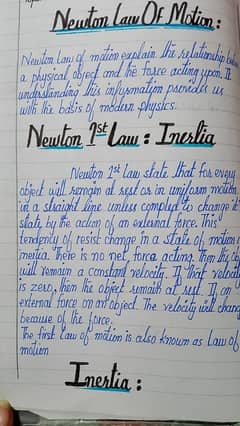 Newton Law Of Motion :
Newton Law of motion explain the relationship betw
a physical object and the force acting upon. It
understanding this information provides us
with the basis of modern physics.
Newton 1st Law : Inertia
Newton 1st Law state that for every
object will remain at rest or in uniform motion
in a straight line unless complied to change it
state by the action of an external force. This
tendency of resist change in a state of motion i
inertia. There is no net force acting. Then the obj
will remain a constant velocity. If that velocit
is zero, then the object remain at rest. If an
external force on an object. The velocity will chang
because of the force.
The first law of motion is also known as Law of
motion
Inertia :